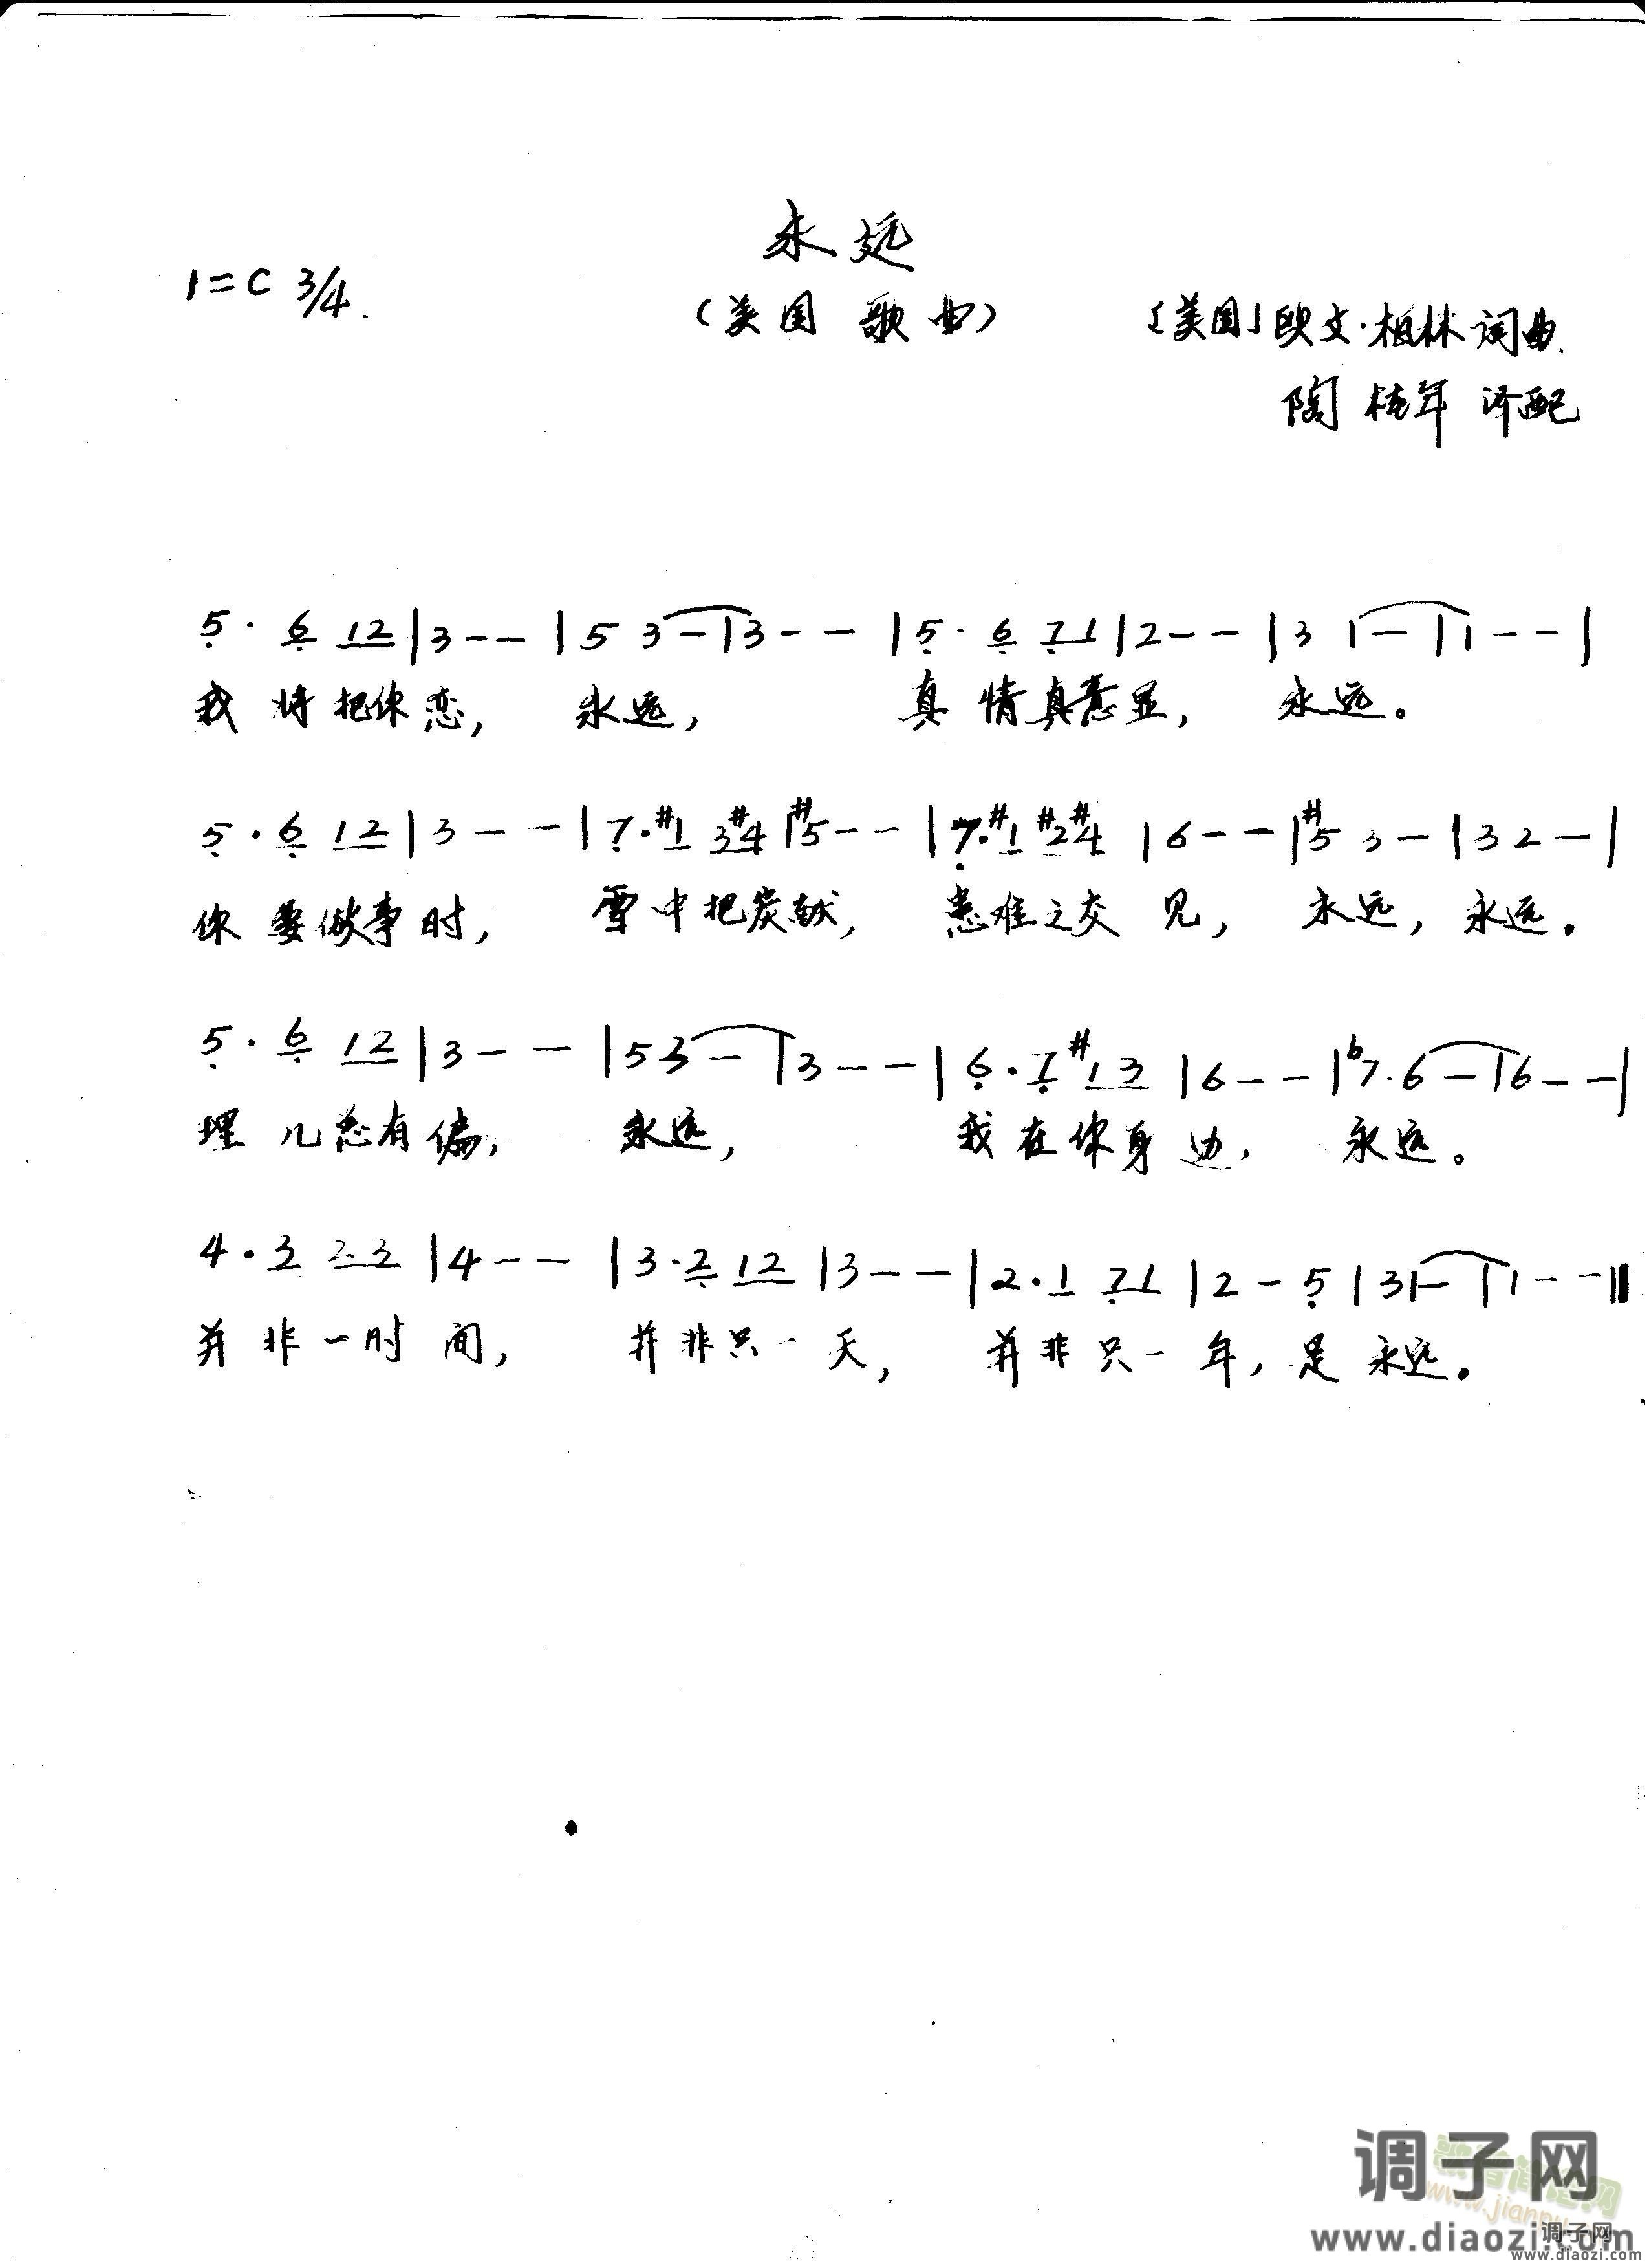 永远
1=C 3/4.
(美国歌曲)
[美国]欧文·柏林词曲.
陶桂年 译配
5· 6 12 | 3 - - | 5 3 - | 3 - - | 5· 6 71 | 2 - - | 3 1 - | 1 - - |
我 将把你恋, 永远, 真情真意显, 永远。
5· 6 12 | 3 - - | 7· #1 3#4 | #5 - - | 7· #1 #2#4 | 6 - - | #5 3 - | 3 2 - |
你要做事时, 雪中把炭献, 患难之交见, 永远, 永远。
5· 6 12 | 3 - - | 5 3 - | 3 - - | 6· 7 #13 | 6 - - | b7· 6 - | 6 - - |
理儿总有偏, 永远, 我在你身边, 永远。
4· 3 23 | 4 - - | 3· 2 12 | 3 - - | 2· 1 71 | 2 - 5 | 3 1 - | 1 - - ‖
并非一时间, 并非只一天, 并非只一年, 是永远。
调子网
www.diaozi.com
调子网
www.diaozi.com